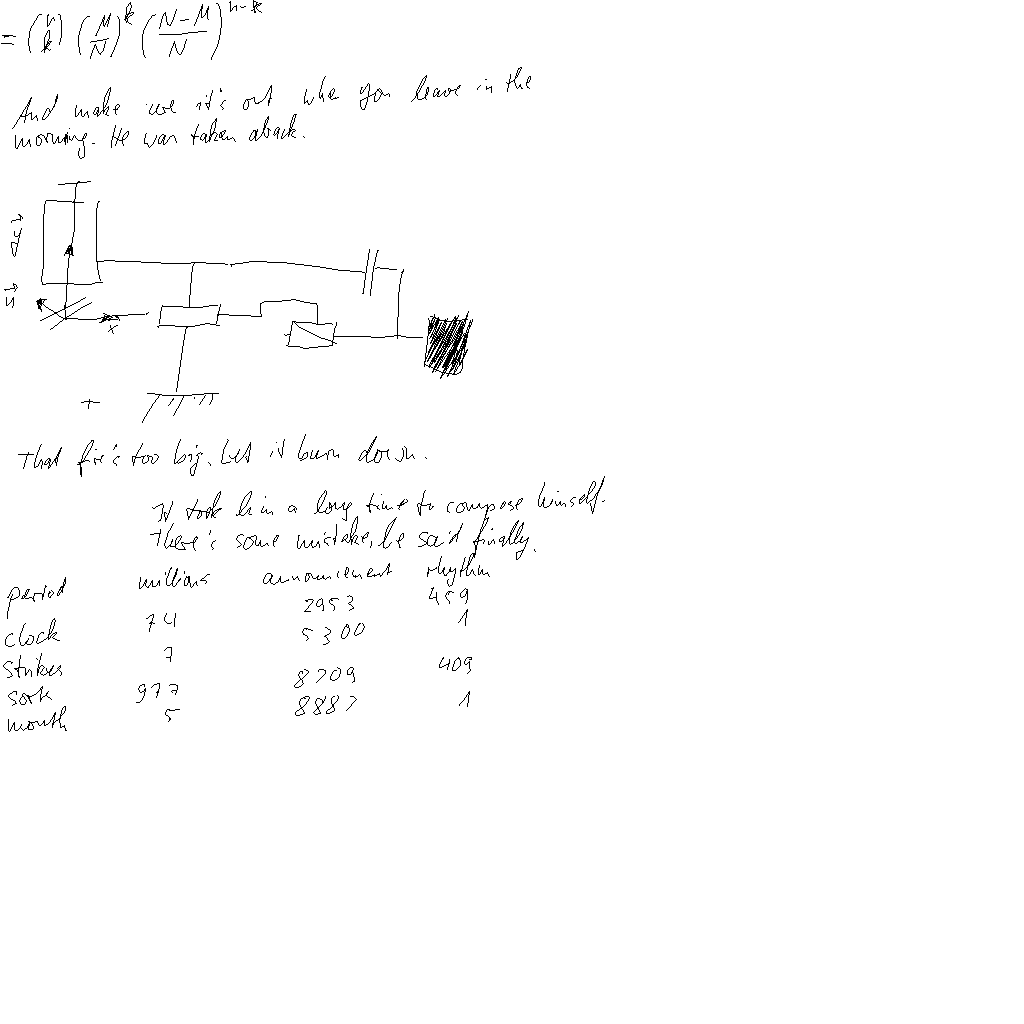 = (n k) (M/N)^k ((N-M)/N)^{n-k}
And make sure it's out when you leave in the
morning. He was taken aback.
y
x
+
That fire's too big. Let it burn down.
It took him a long time to compose himself.
There's some mistake, he said finally.
period millions announcement rhythm
clock 74 2953 459
strikes 7 5300 1
sort 977 8709 409
mouth 5 8887 1